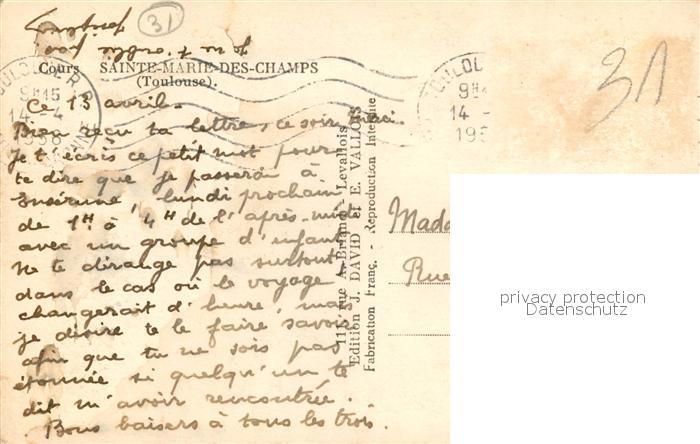 je ne t'oublie pas
31
31
Cours SAINTE-MARIE-DES-CHAMPS
(Toulouse).
TOULOUSE R.P.
9H15
14-4
1958
TOULOUSE
9H
14-
195
Ce 13 avril.
Bien reçu ta lettre, ce soir, merci.
Je t'écris ce petit mot pour
te dire que je passerai à
Ensérune, lundi prochain
de 1H à 4H de l'après-midi
avec un groupe d'enfants
Ne te dérange pas surtout
dans le cas où le voyage
changerait d'heure, mais
je désire te le faire savoir
afin que tu ne sois pas
étonnée si quelqu'un te
dit m'avoir rencontrée.
Bons baisers à tous les trois.
111, rue A.-Briand - Levallois
Edition J. DAVID et E. VALLOIS
Fabrication Franç. - Reproduction Interdite
Mada
Rue
privacy protection
Datenschutz